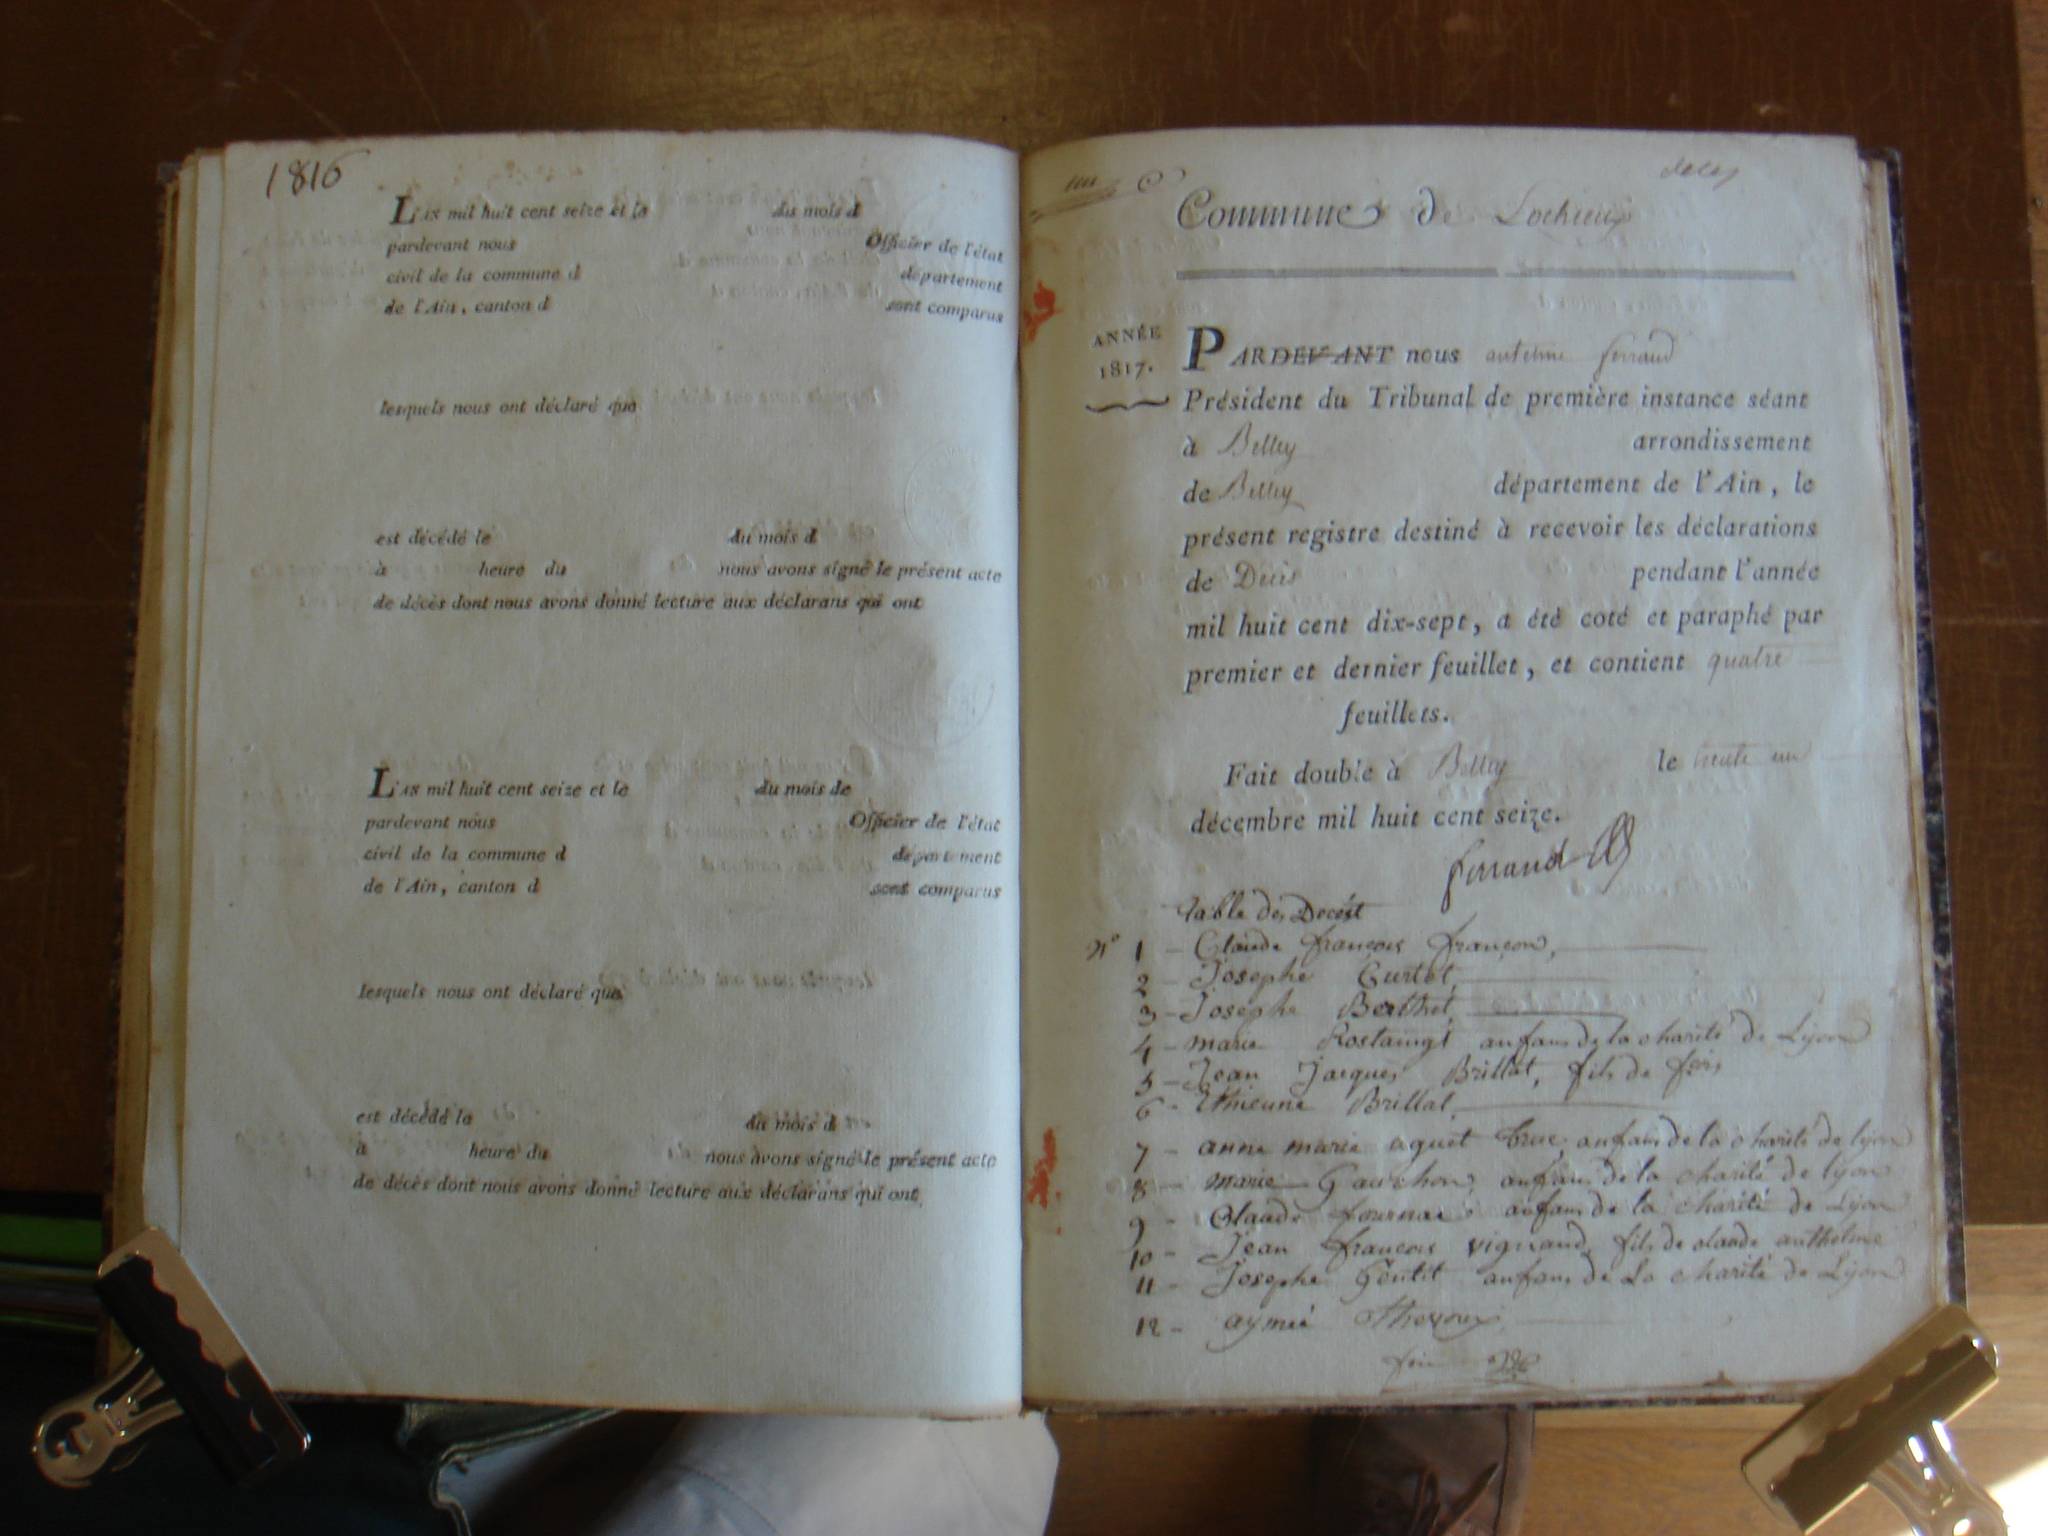 1816
L'AN mil huit cent seize et le du mois d
pardevant nous Officier de l'état
civil de la commune d département
de l'Ain, canton d sont comparus
lesquels nous ont déclaré que
est décédé le du mois d
à heure du nous avons signé le présent acte
de décès dont nous avons donné lecture aux déclarans qui ont
L'AN mil huit cent seize et le du mois de
pardevant nous Officier de l'état
civil de la commune d département
de l'Ain, canton d sont comparus
lesquels nous ont déclaré que
est décédé le du mois d
à heure du nous avons signé le présent acte
de décès dont nous avons donné lecture aux déclarans qui ont
Commune de Lochieux
ANNÉE
1817.
PARDEVANT nous antelme ferrand
Président du Tribunal de première instance séant
à Belley arrondissement
de Belley département de l'Ain, le
présent registre destiné à recevoir les déclarations
de Décès pendant l'année
mil huit cent dix-sept, a été coté et paraphé par
premier et dernier feuillet, et contient quatre
feuillets.
Fait double à Belley le trente un
décembre mil huit cent seize.
ferrand
Table des Decést
N° 1 - Claude françois françon,
2 - Josephe Curtet,
3 - Josephe Berthet,
4 - marie Rostaingt anfans de la charité de Lyon
5 - Jean Jacques Brillat, fils de fois
6 - Ethieune Brillat,
7 - anne marie aguet anfans de la charité de lyon
8 - marie Gauchon, anfans de la charité de lyon
9 - Claude anfans de la charité de Lyon
10 - Jean françois vignand, fils de claude anthelme
11 - Josephe Gentit anfans de La charité de Lyon
12 - aymée Thevoux